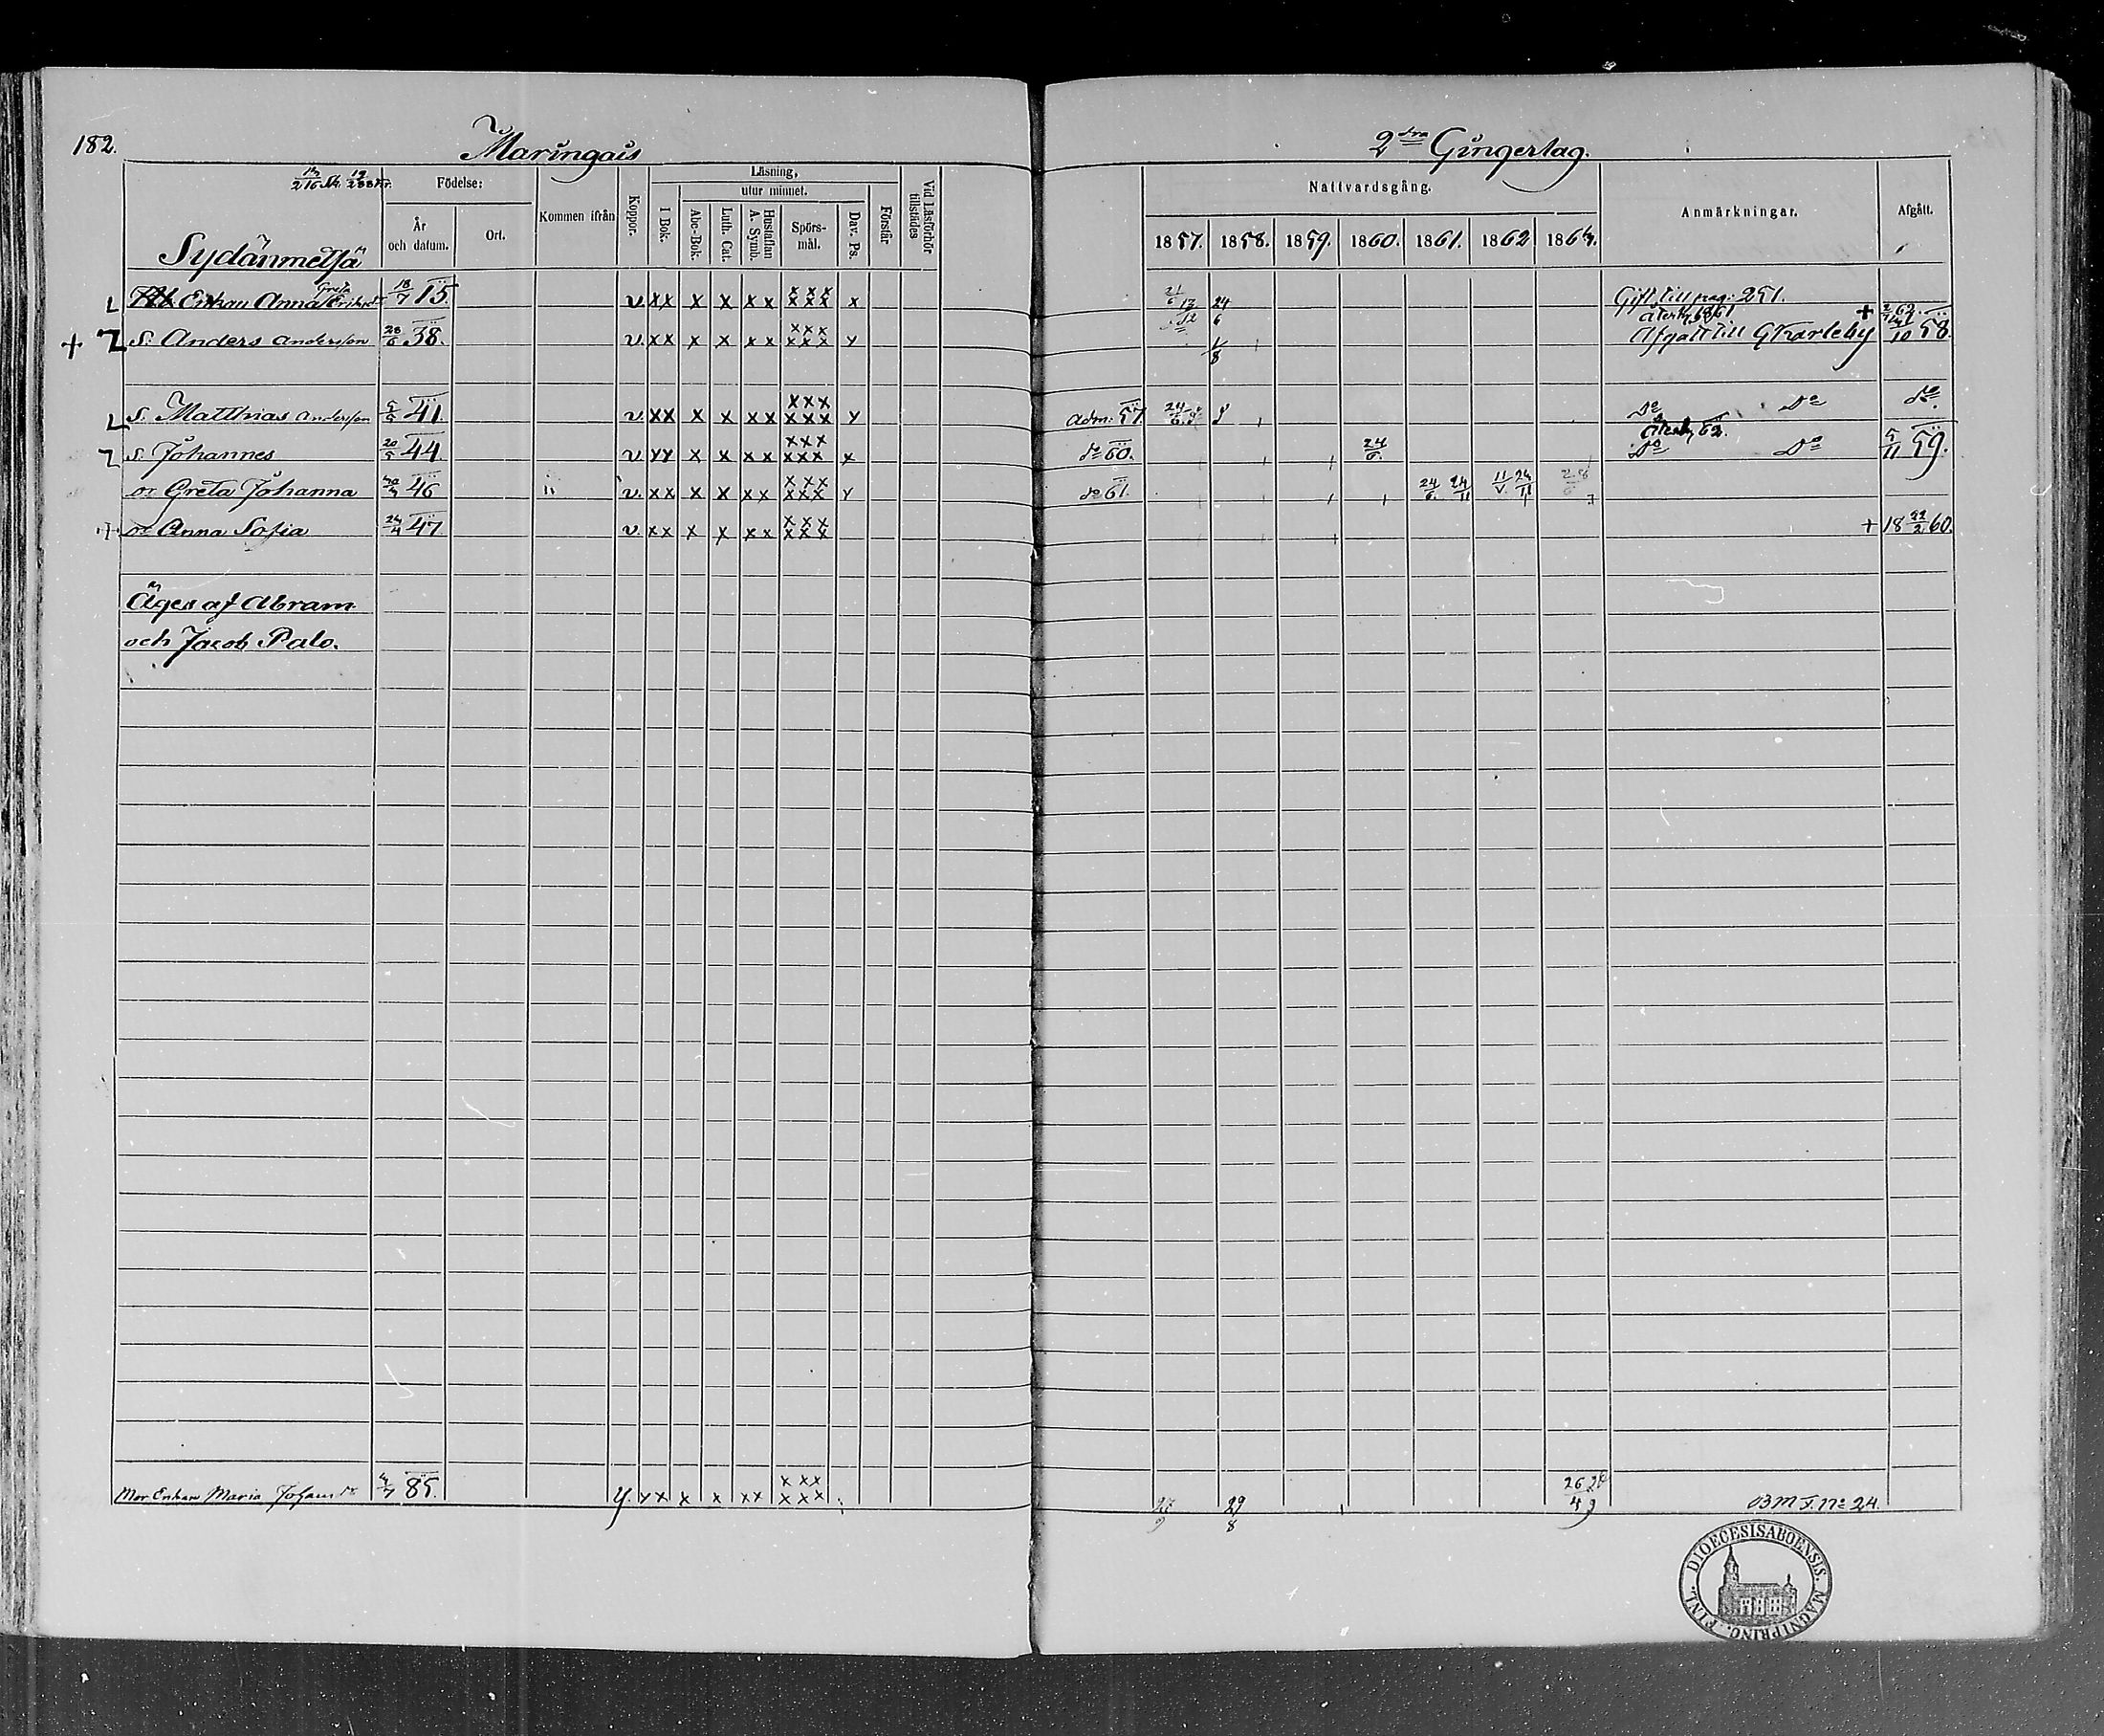 182.
Maringais
2dra Gingertag.
Födelse:
År och datum.
Ort.
Kommen ifrån
Koppor.
Läsning,
I Bok.
utur minnet.
Abc-Bok.
Luth. Cat.
Hustaflan A. Symb.
Spörs-mål.
Dav. Ps.
Förstår
Vid Läsförhör tillstädes
Nattvardsgång.
1857. 1858. 1859. 1860. 1861. 1862 1864.
Anmärkningar.
Afgått.
Sydänmetsä
Enkan Anna Greta Eriksdr 18/7 15. v. xx x x xx xxx xxx x 24/6 Gift till pag: 251.
återk. 1861 +
s. Anders Andersson 28/6 38. v. xx x x xx xxx xxx x 1/8 Afgått till GKarleby 58.
s. Matthias Andersson 41. v. xx x x xx xxx xxx x Adm: 57 Do Do do.
62.
s. Johannes 20/5 44 v. xx x x xx xxx xxx x do 60. 24/6. Do Do 5/11 59.
dr Greta Johanna 46 v. xx x x xx xxx xxx x do 61. 24/6. 24/11
dr Anna Sofia 24/4 47 v. xx x x xx xxx xxx + 18 22/2 60.
Äges af Abram
och Jacob Palo.
Mor Enkan Maria Johansdr 4/7 85. v. xx x x xx xxx xxx 29/8 26/4 BM I. No 24.
FINL. DIOECESIS ABOENSIS. MAGNI PRINC.